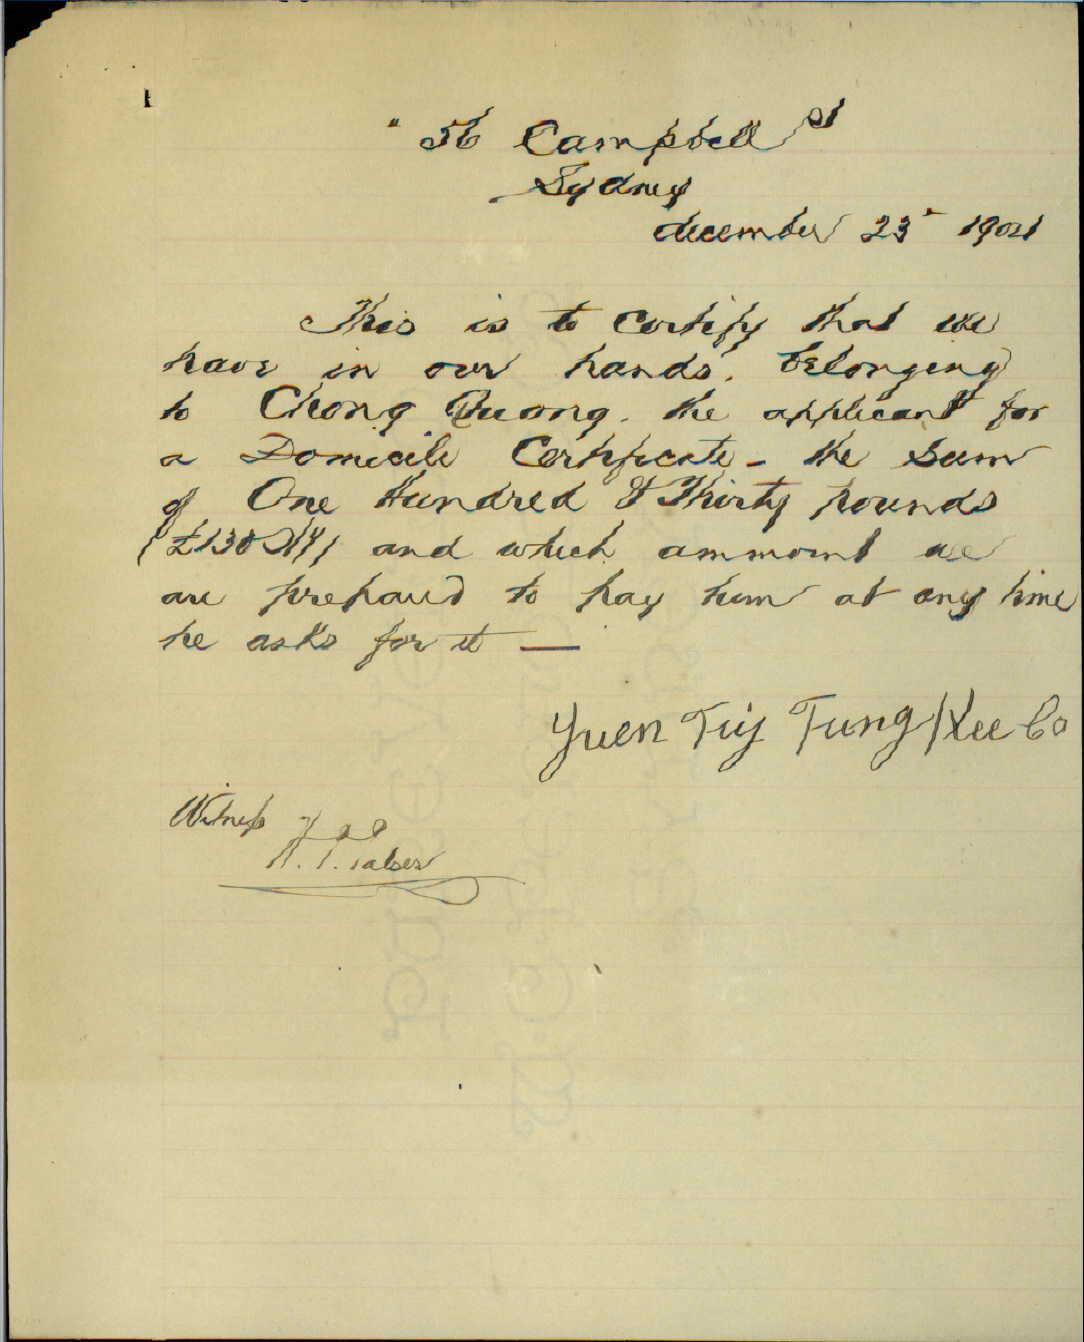 56 Campbell St
Sydney
december 23" 1901
This is to Certify that we
have in our hands, belonging
to Chong Quong. the applicant for
a Domicile Certificate - the Sum
of One Hundred & Thirty pounds
and which ammount we
are prepared to pay him at any time
he asks for it —
Yuen Tiy Tung Kee Co
Witness